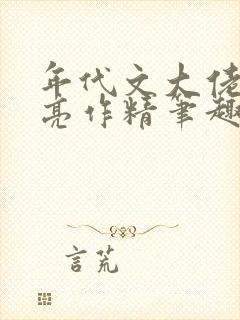 年代文大佬
亮作精筆趣
言荒